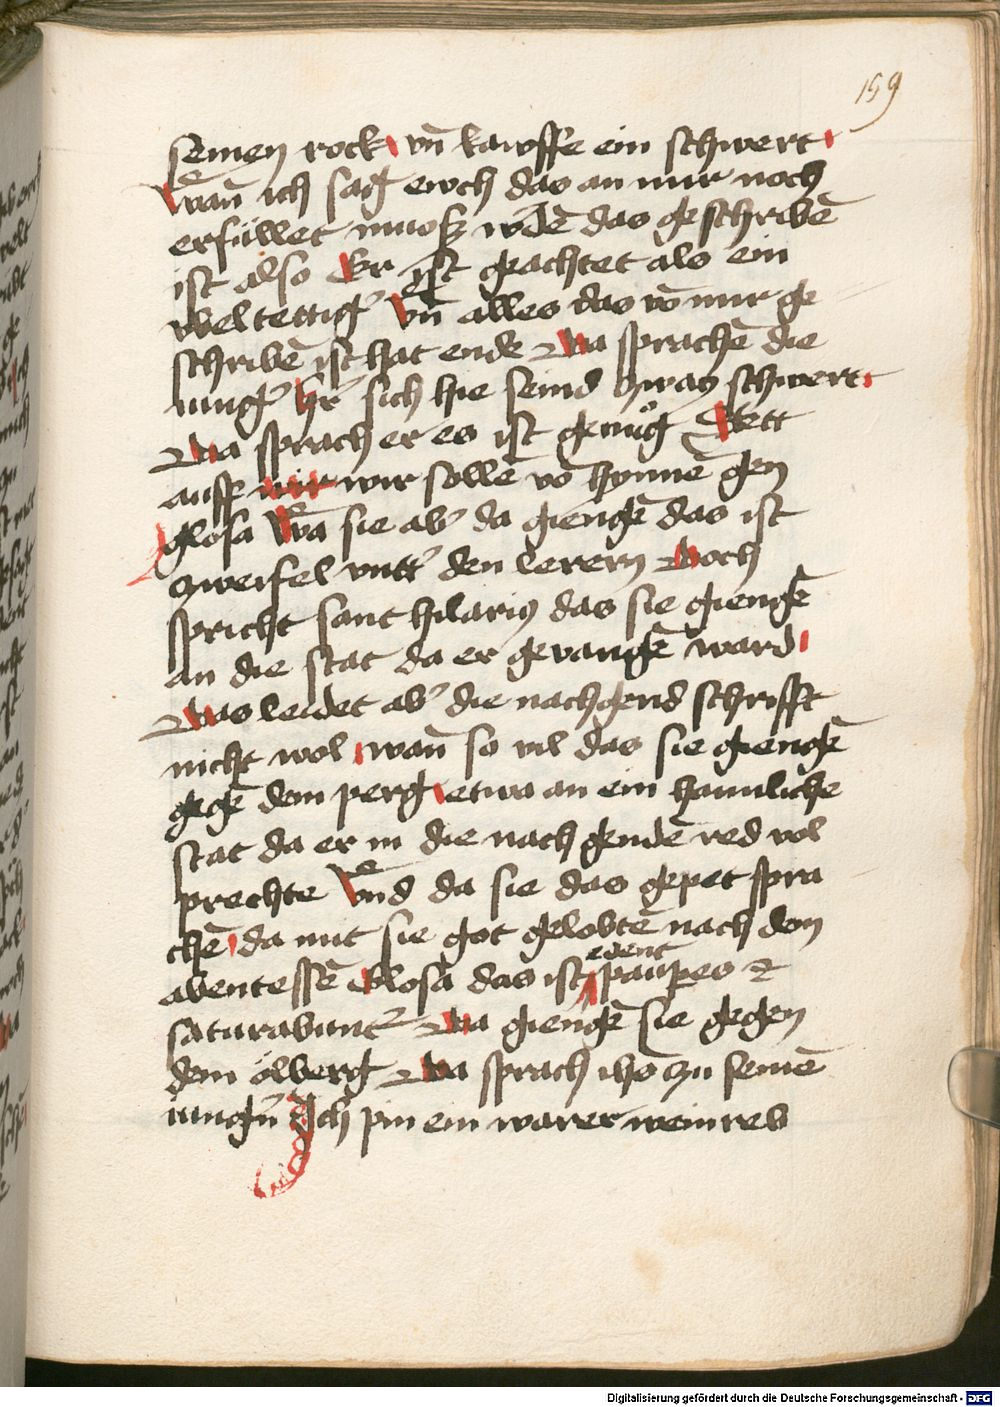 159
seinen rock vn̄ kawffe ein schwert
Wan̄ ich sag ewch das an mir noch
erfüllet muoß wdē das geschribē
ist also Er ist geachtet als ein
vbeltettigʼ Vn̄ alles das vō mir ge
schribē ist hat ende Da sprachē die
iungʼ hʼr sich hie seind zway schwert
Da sprach er es ist genůg Stett
auff mir wir sollē vō hynnē gen
glosa Wa sie abʼ da giengē das ist
zweifel vnttʼ den lerern Doch
spricht sant hilarius das sie giengē
an die stat da er gevangē ward
Das leidet abʼ die nachgend schrifft
nicht wol wan̄ so vil das sie giengē
gegē dem perg etwa an ein haimliche
stat da er in die nach gendē red vol
prechte Vnd da sie das gepet spra
chē da mit sie got gelobtē nach dem
edent
abentessē Glosa das ist paupes ⁊
saturabuntʼ Da giengē sie gegen
dem ölberg Da sprach ihs zu seinē
iungʼn Ich pin ein warer weinreb
Digitalisierung gefördert durch die Deutsche Forschungsgemeinschaft - DFG